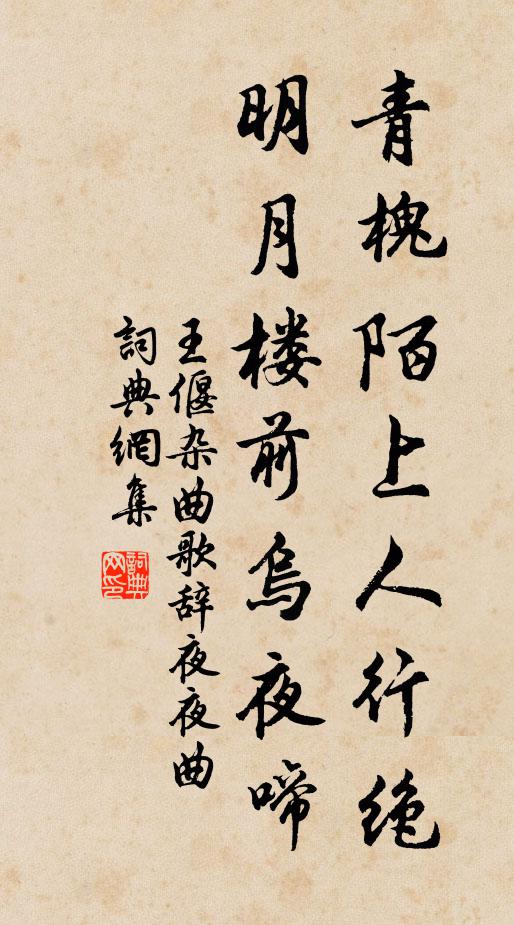 青槐陌上人行绝
明月楼前乌夜啼
王偃杂曲歌辞夜夜曲
詞典網集
詞典網印